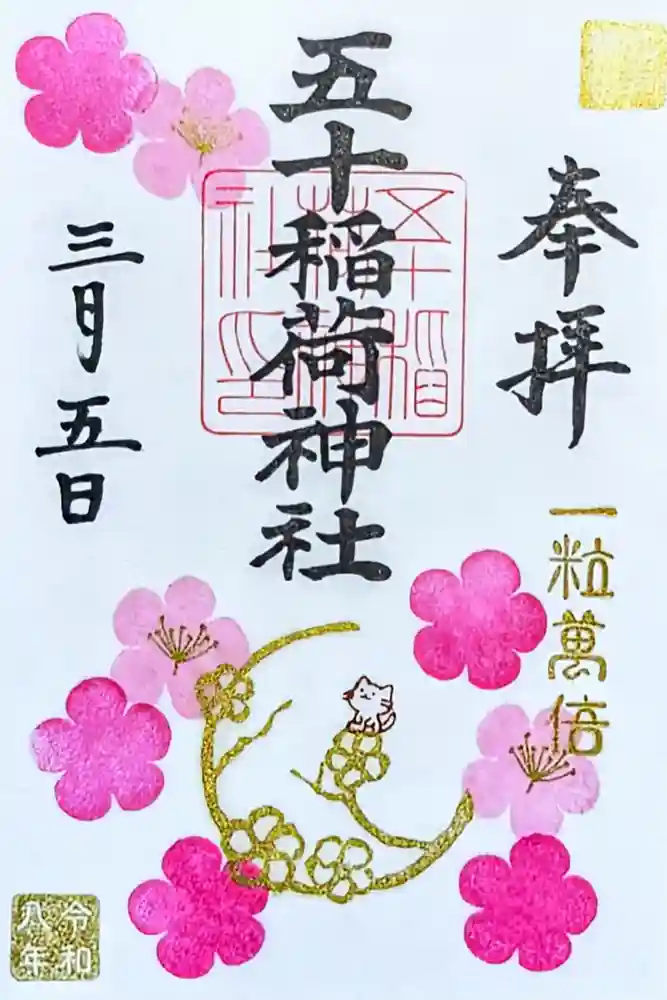 奉拝
一粒萬倍
五十稲荷神社
五十稲
荷神
社印
三月五日
令和
八年